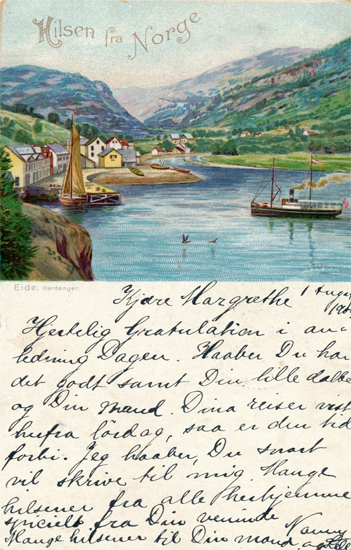 Hilsen fra Norge
Eide. Hardanger.
Kjære Margrethe 1 August
Hertelig Gratulation i an-
ledning Dagen. Haaber Du har
det godt samt Din lille datter
og Din mand. Dina reiser vest
herfra lørdag, saa er den tid
forbi. Jeg haaber, Du snart
vil skrive til mig. Mange
hilsener fra alle herhjemme
specielt fra Din veninde Nanny
Mange hilsener til Din mand